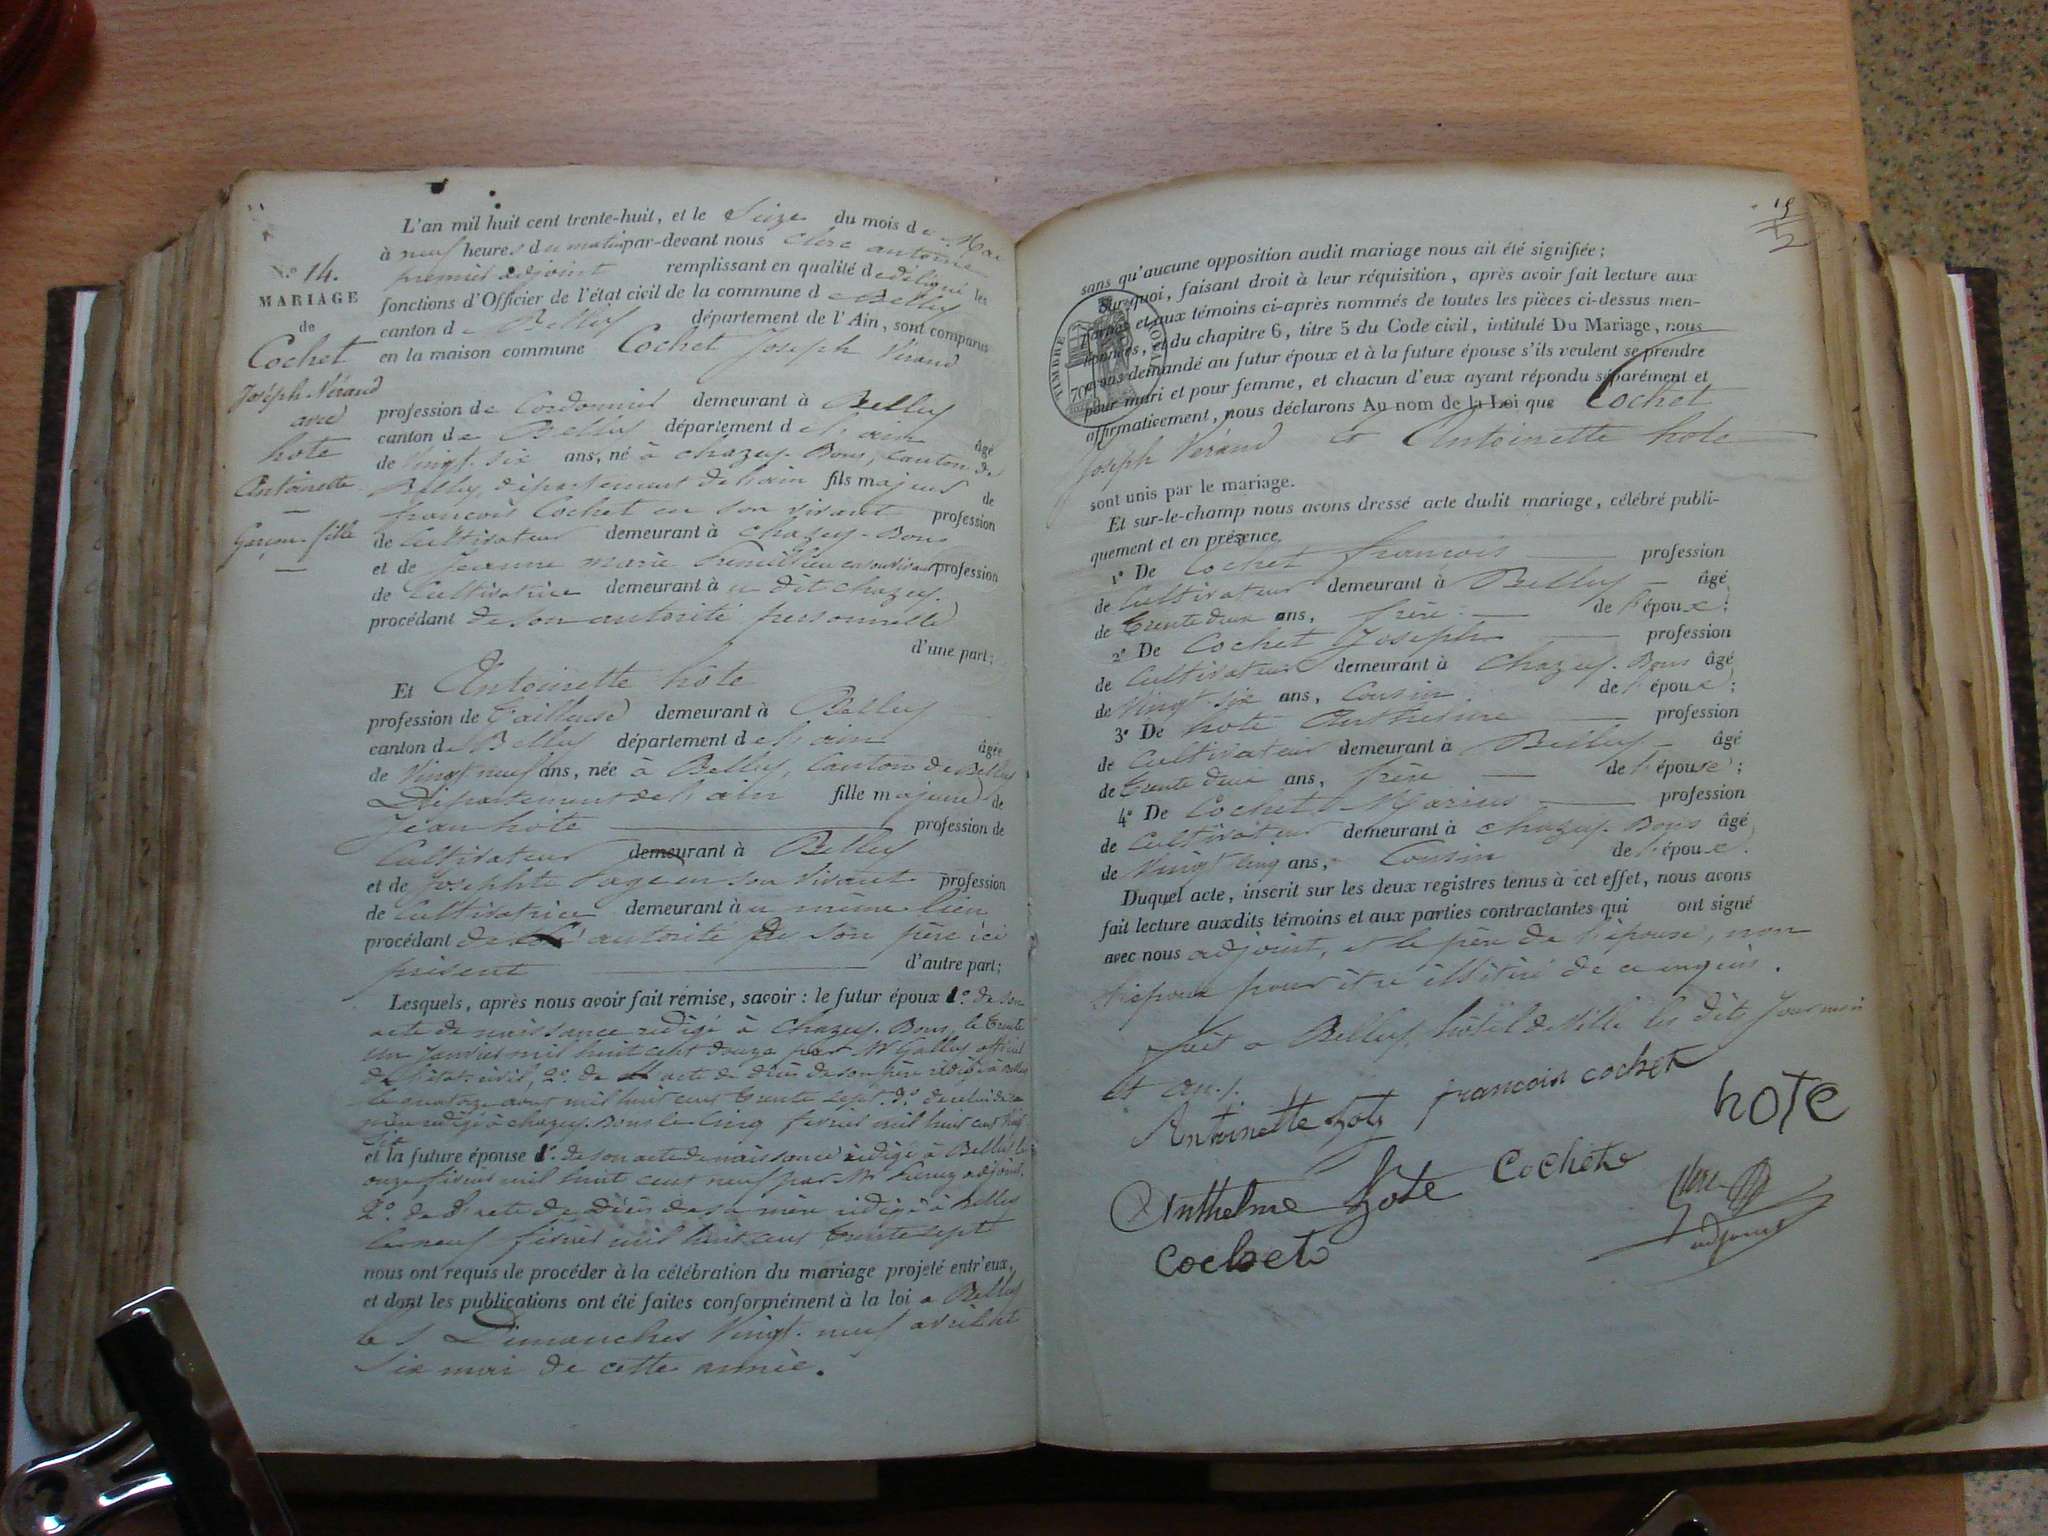 N.o 14.
MARIAGE
de
Cochet
Joseph Vérand
avec
hote
Antoinette
Garçon fille
L'an mil huit cent trente-huit, et le Seize du mois de Mai
à neuf heures du matin par-devant nous Clerc antoine
premier adjoint remplissant en qualité de délégué les
fonctions d'Officier de l'état civil de la commune de Belley
canton de Belley département de l'Ain, sont comparus
en la maison commune Cochet Joseph Vérand
profession de Cordonnier demeurant à Belley
canton de Belley département de l'ain âgé
de Vingt-six ans, né à Chazey-Bons, Canton de
Belley, département de l'ain fils majeur de
françois Cochet en son vivant profession
de Cultivateur demeurant à Chazey-Bons
et de Jeanne marie en son vivant profession
de Cultivatrice demeurant à u dit Chazey.
procédant de son autorité personnelle
d'une part;
Et Antoinette hôte
profession de Tailleuse demeurant à Belley
canton de Belley département de l'ain âgée
de Vingt neuf ans, née à Belley, Canton de Belley
Département de l'ain fille majeure de
Jean hôte profession de
Cultivateur demeurant à Belley
et de Josephte Sage en son vivant profession
de Cultivatrice demeurant à u même lieu
procédant de l'autorité de son père ici
présent d'autre part;
Lesquels, après nous avoir fait remise, savoir : le futur époux 1.o de son
acte de naissance rédigé à Chazey-Bons, le trente
un Janvier mil huit cent douze par Mr Galley officier
de l'état civil, 2.o de l'acte de décès de son père rédigé à Belley
le quatorze aout mil huit cent trente sept. 3.o de celui de sa
mère rédigé à Chazey-Bons le Cinq février mil huit cent
et la future épouse 1.o de son acte de naissance rédigé à Belley le
onze février mil huit cent neuf par Mr adjoint.
2.o de l'acte de Décès de sa mère rédigé à Belley
le neuf février mil huit cent trente sept
nous ont requis de procéder à la célébration du mariage projeté entr'eux,
et dont les publications ont été faites conformément à la loi à Belley
les Dimanches Vingt-neuf avril et
Six mai de cette année.
15
sans qu'aucune opposition audit mariage nous ait été signifiée;
Sur quoi, faisant droit à leur réquisition, après avoir fait lecture aux
parties et aux témoins ci-après nommés de toutes les pièces ci-dessus men-
tionnées, et du chapitre 6, titre 5 du Code civil, intitulé Du Mariage, nous
avons demandé au futur époux et à la future épouse s'ils veulent se prendre
pour mari et pour femme, et chacun d'eux ayant répondu séparément et
affirmativement, nous déclarons Au nom de la Loi que Cochet
Joseph Vérand et Antoinette hote
TIMBRE ROYAL
70c
sont unis par le mariage.
Et sur-le-champ nous avons dressé acte dudit mariage, célébré publi-
quement et en présence
1° De Cochet françois profession
de Cultivateur demeurant à Belley âgé
de Trente deux ans, frère de l'époux;
2° De Cochet Joseph profession
de Cultivateur demeurant à Chazey-Bons âgé
de Vingt-six ans, Cousin de l'époux;
3° De hote Anthelme profession
de Cultivateur demeurant à Belley âgé
de Trente deux ans, frère de l'épouse;
4° De Cochet Marius profession
de Cultivateur demeurant à Chazey-Bons âgé
de Vingt cinq ans, Cousin de l'époux.
Duquel acte, inscrit sur les deux registres tenus à cet effet, nous avons
fait lecture auxdits témoins et aux parties contractantes qui ont signé
avec nous adjoint, et le père de l'épouse, non
l'époux pour être illétéré de ce enquis.
fait à Belley, hôtel de Ville les dits Jour mois
et an./.
Antoinette hote francois cochet hote
Anthelme hote Cochet Clerc
adjoint
Cochet